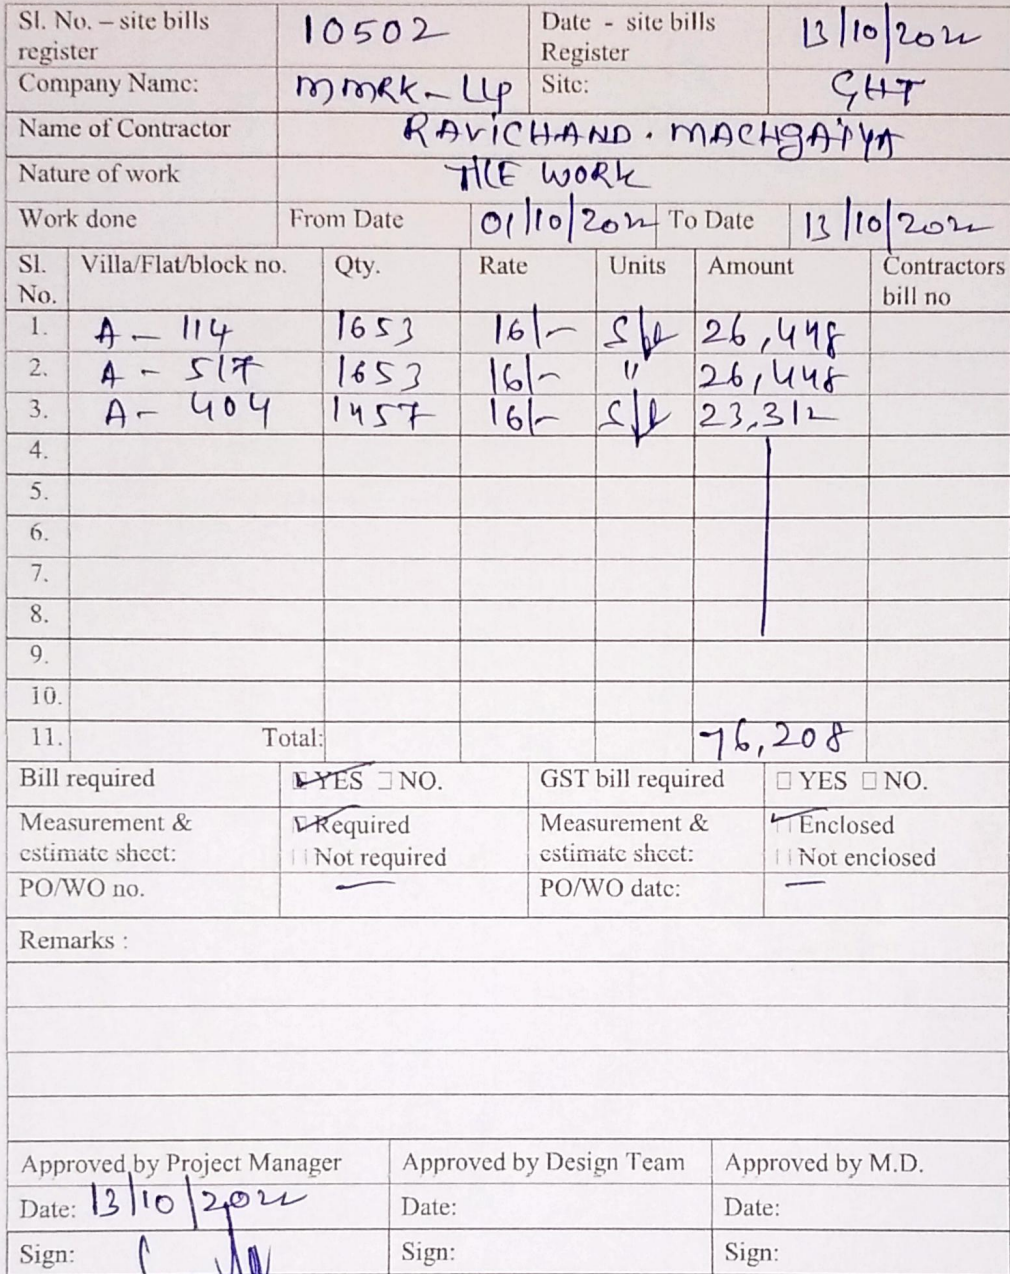 Sl. No. – site bills register 10502 Date - site bills Register 13/10/2022
Company Name: MMRK-LLP Site: GHT
Name of Contractor RAVICHAND. MACHGAIYA
Nature of work TILE WORK
Work done From Date 01/10/2022 To Date 13/10/2022
Sl. No. Villa/Flat/block no. Qty. Rate Units Amount Contractors bill no
1. A - 114 1653 16/- Sft 26,448
2. A - 517 1653 16/- " 26,448
3. A - 404 1457 16/- Sft 23,312
4.
5.
6.
7.
8.
9.
10.
11. Total: 76,208
Bill required YES NO. GST bill required YES NO.
Measurement & estimate sheet: Required Not required Measurement & estimate sheet: Enclosed Not enclosed
PO/WO no. — PO/WO date: —
Remarks :
Approved by Project Manager Approved by Design Team Approved by M.D.
Date: 13/10/2022 Date: Date:
Sign: Sign: Sign: